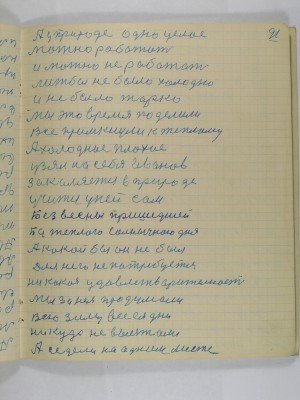 91
А у природе одно целое
можно работат
и можно не работат
лижбы не было холодно
и не было жарко
мы это время поделили
Все примкнули к теплому
А холодные плохие
узял на себя Иванов
закаляется в природе
учится у ней сам
Без весны пришедшей
Ба теплого солнечного дня
А какой бы он не был
для него не потребуется
никакая удовлетварительност
мы за них продумали
всю зиму все одни
никуда не выезжали
А седели на адном месте